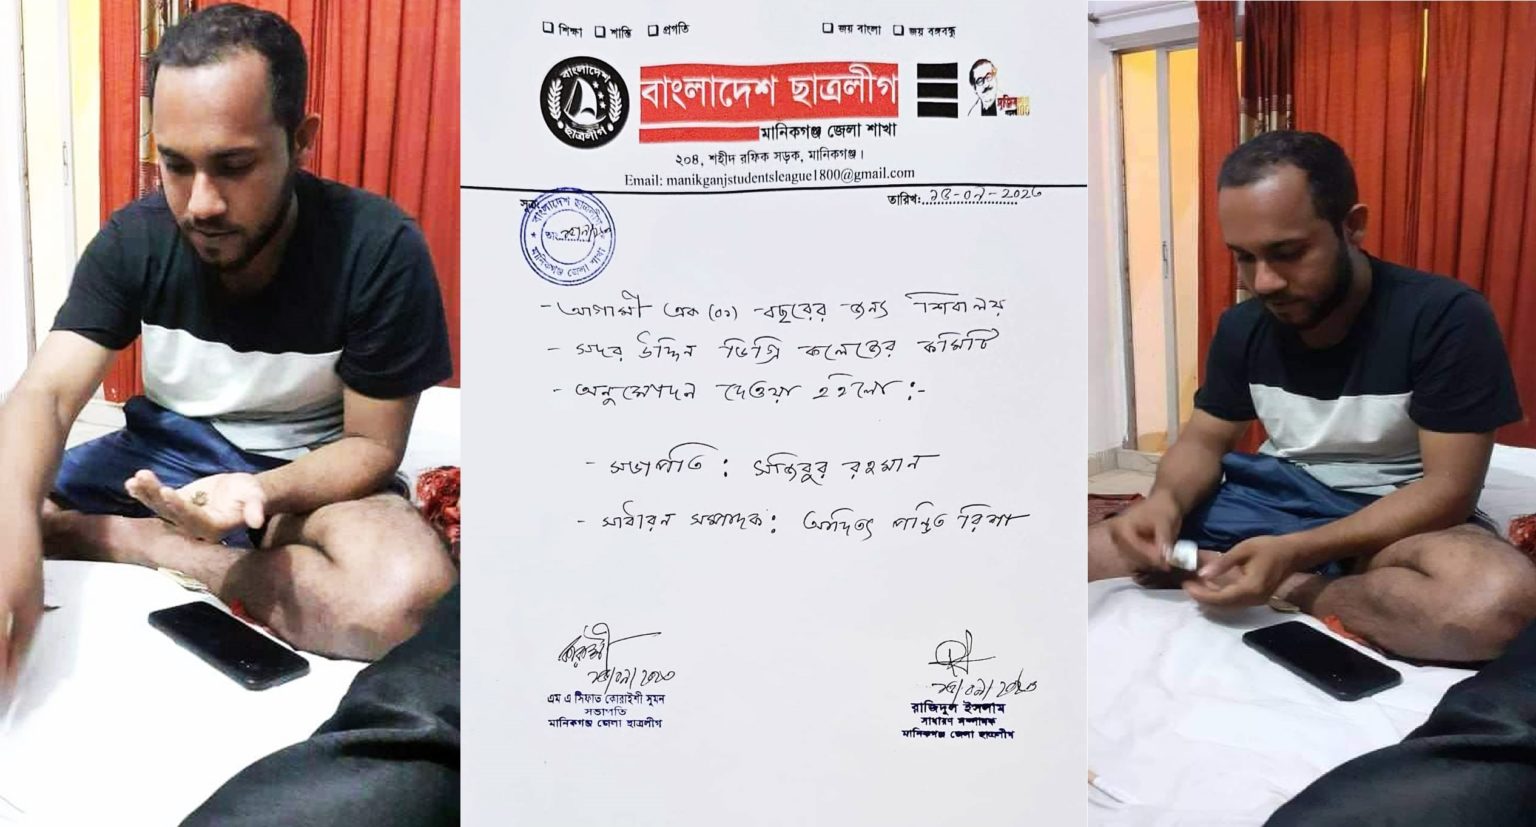 ❑ শিক্ষা ❑ শান্তি ❑ প্রগতি
❑ জয় বাংলা ❑ জয় বঙ্গবন্ধু
বাংলাদেশ
ছাত্রলীগ
বাংলাদেশ ছাত্রলীগ
মানিকগঞ্জ জেলা শাখা
২০৪, শহীদ রফিক সড়ক, মানিকগঞ্জ।
Email: manikganjstudentsleague1800@gmail.com
সূত্র
তারিখ:
বাংলাদেশ ছাত্রলীগ
মানিকগঞ্জ জেলা শাখা
- আগামী এক (০১) বছরের জন্য শিবালয়
- সদর উদ্দিন ডিগ্রি কলেজের কমিটি
- অনুমোদন দেওয়া হইলো :-
- সভাপতি : মজিবুর রহমান
- সাধারন সম্পাদক :
এম এ সিফাত কোরাইশী সুমন
সভাপতি
মানিকগঞ্জ জেলা ছাত্রলীগ
রাজিদুল ইসলাম
সাধারণ সম্পাদক
মানিকগঞ্জ জেলা ছাত্রলীগ